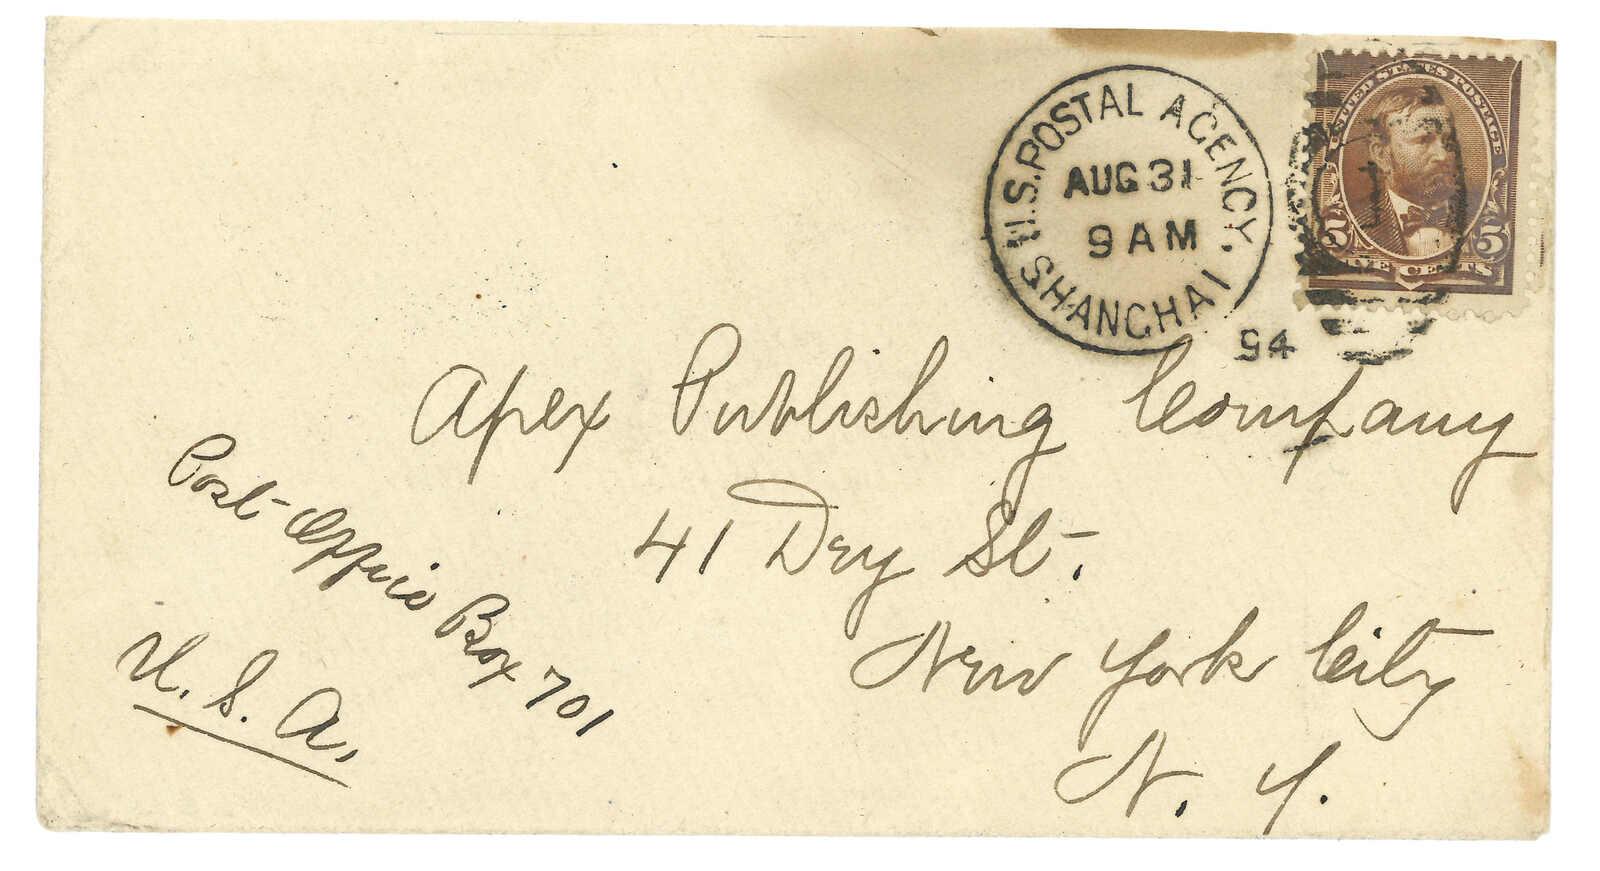 U.S. POSTAL AGENCY,
AUG 31
9 AM
SHANGHAI
94
UNITED STATES POSTAGE
5 5
FIVE CENTS
Apex Publishing Company
41 Dey St.
New York City
N. Y.
Post-Office Box 701
U. S. A.